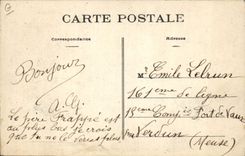 CARTE POSTALE
Correspondance
Adresse
Bonjour
Mr Emile Lebrun
161eme de ligne
Fort de Vaux
par Verdun (Meuse)
Le père Frappé est
au plus bas je crois
que tu ne le verras plus